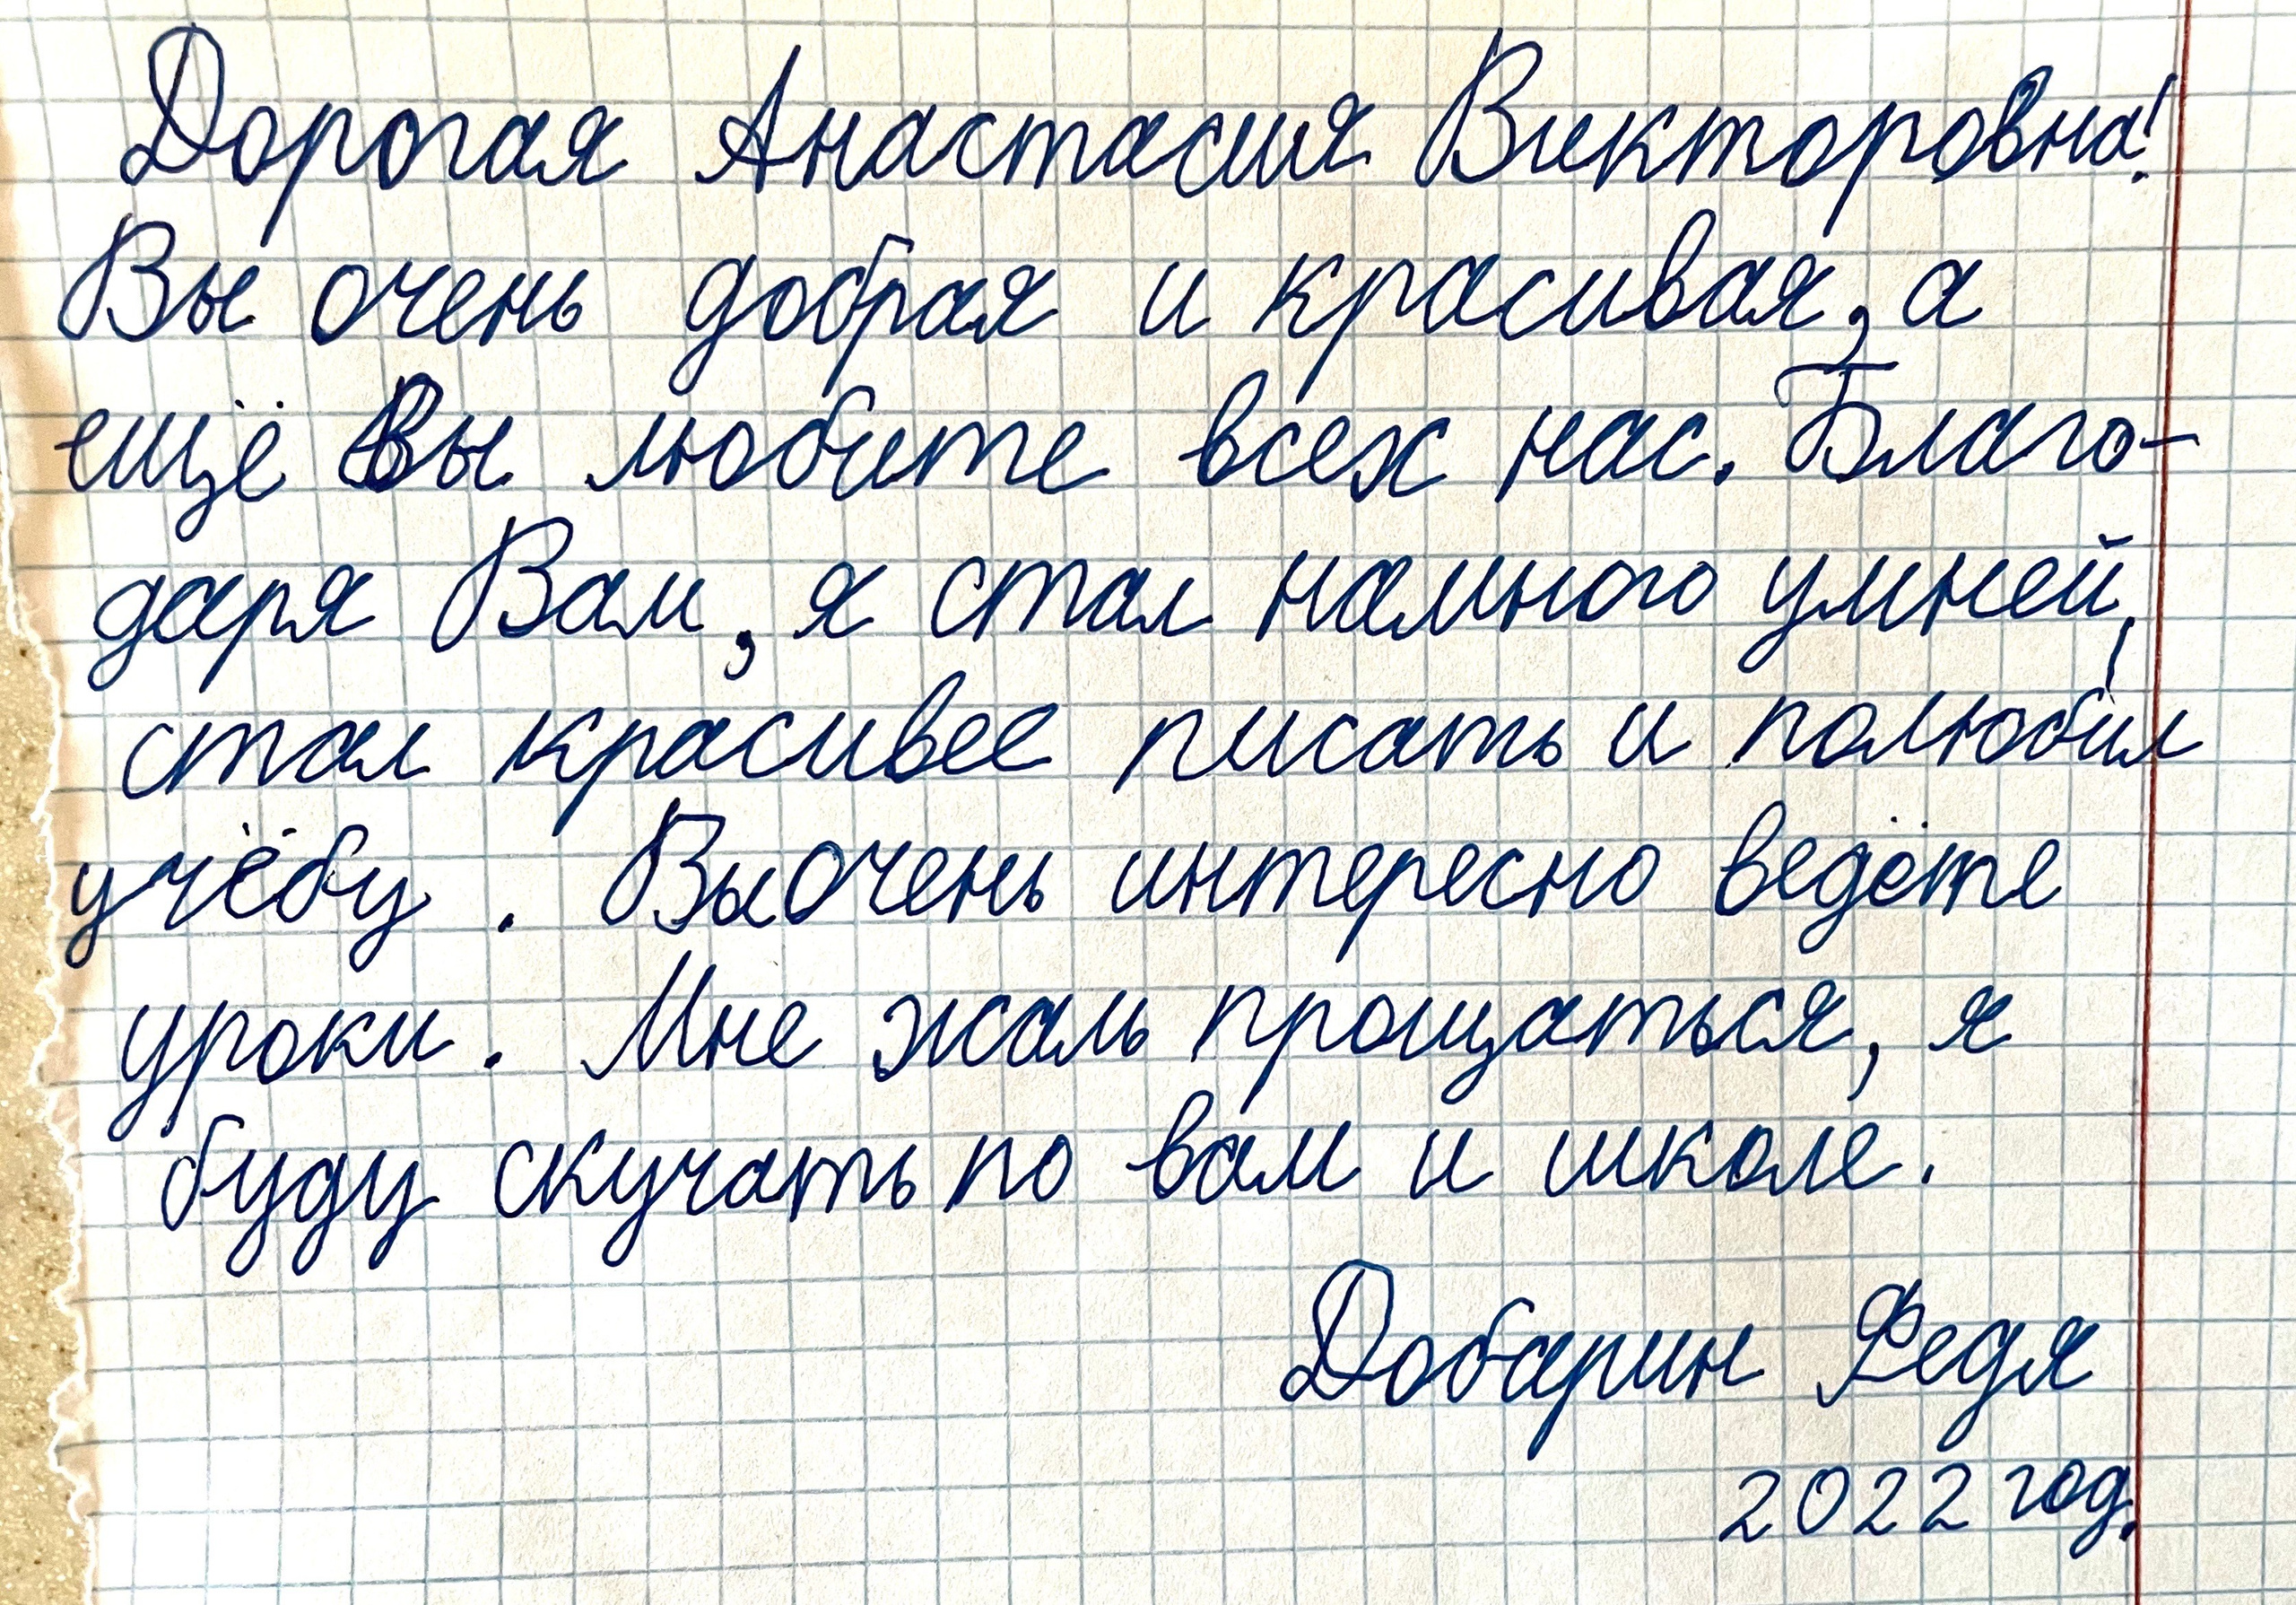 Дорогая Анастасия Викторовна!
Вы очень добрая и красивая, а
ещё Вы любите всех нас. Благо-
даря Вам, я стал намного умней,
стал красивее писать и полюбил
учёбу. Вы очень интересно ведёте
уроки. Мне жаль прощаться, я
буду скучать по вам и школе.
Добарин Федя
2022 год.